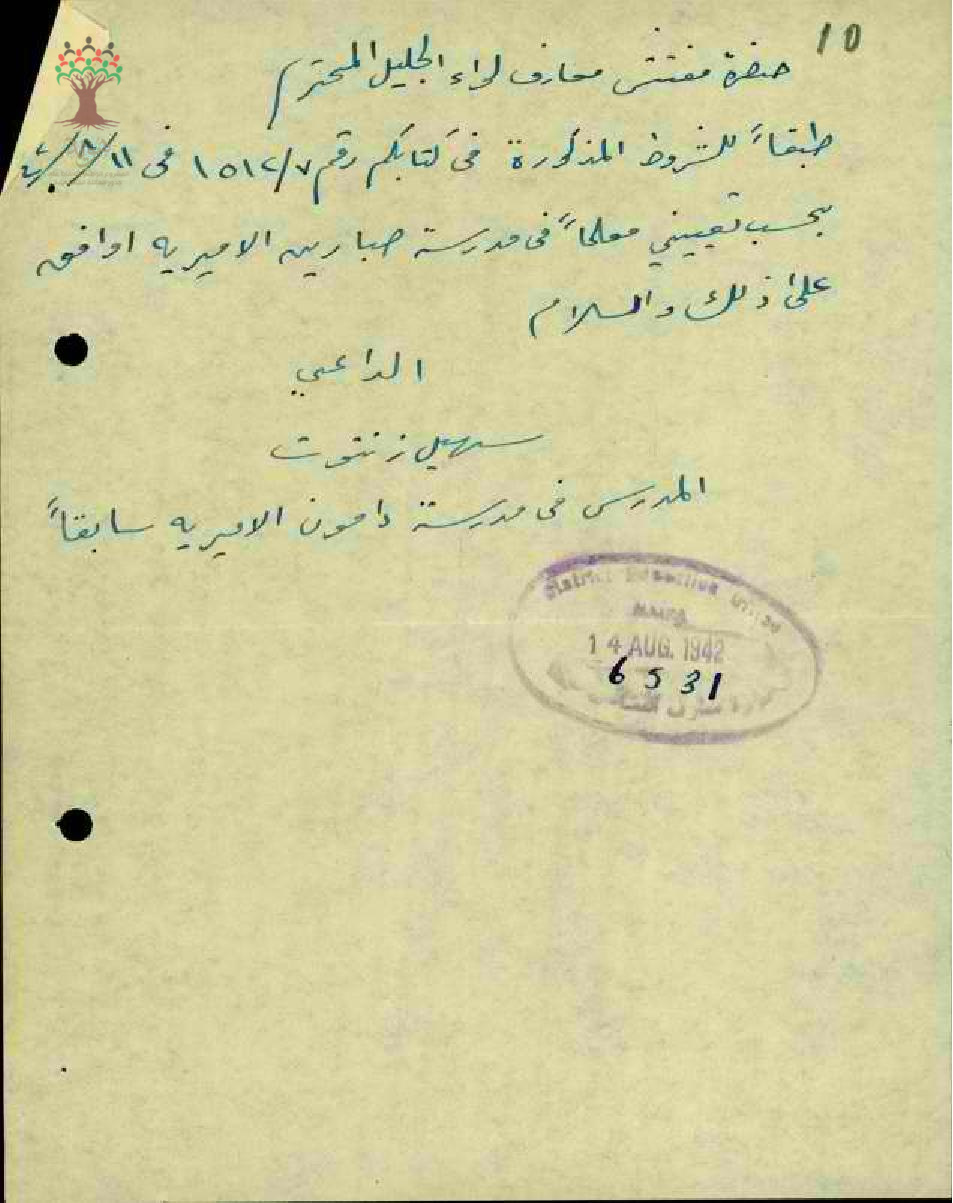 10
حضرة مفتش معارف لواء الجليل المحترم
طبقاً للشروط المذكورة في كتابكم رقم ١٥١٢/٧ في ١١/٨/
بحسب تعييني معلماً في مدرسة صبارين الاميريه اوافق
على ذلك والسلام
الداعي
سهيل زنتوت
المدرس في مدرسة دامون الاميريه سابقاً
District Education Office
HAIFA
14 AUG. 1942
6531
معارف